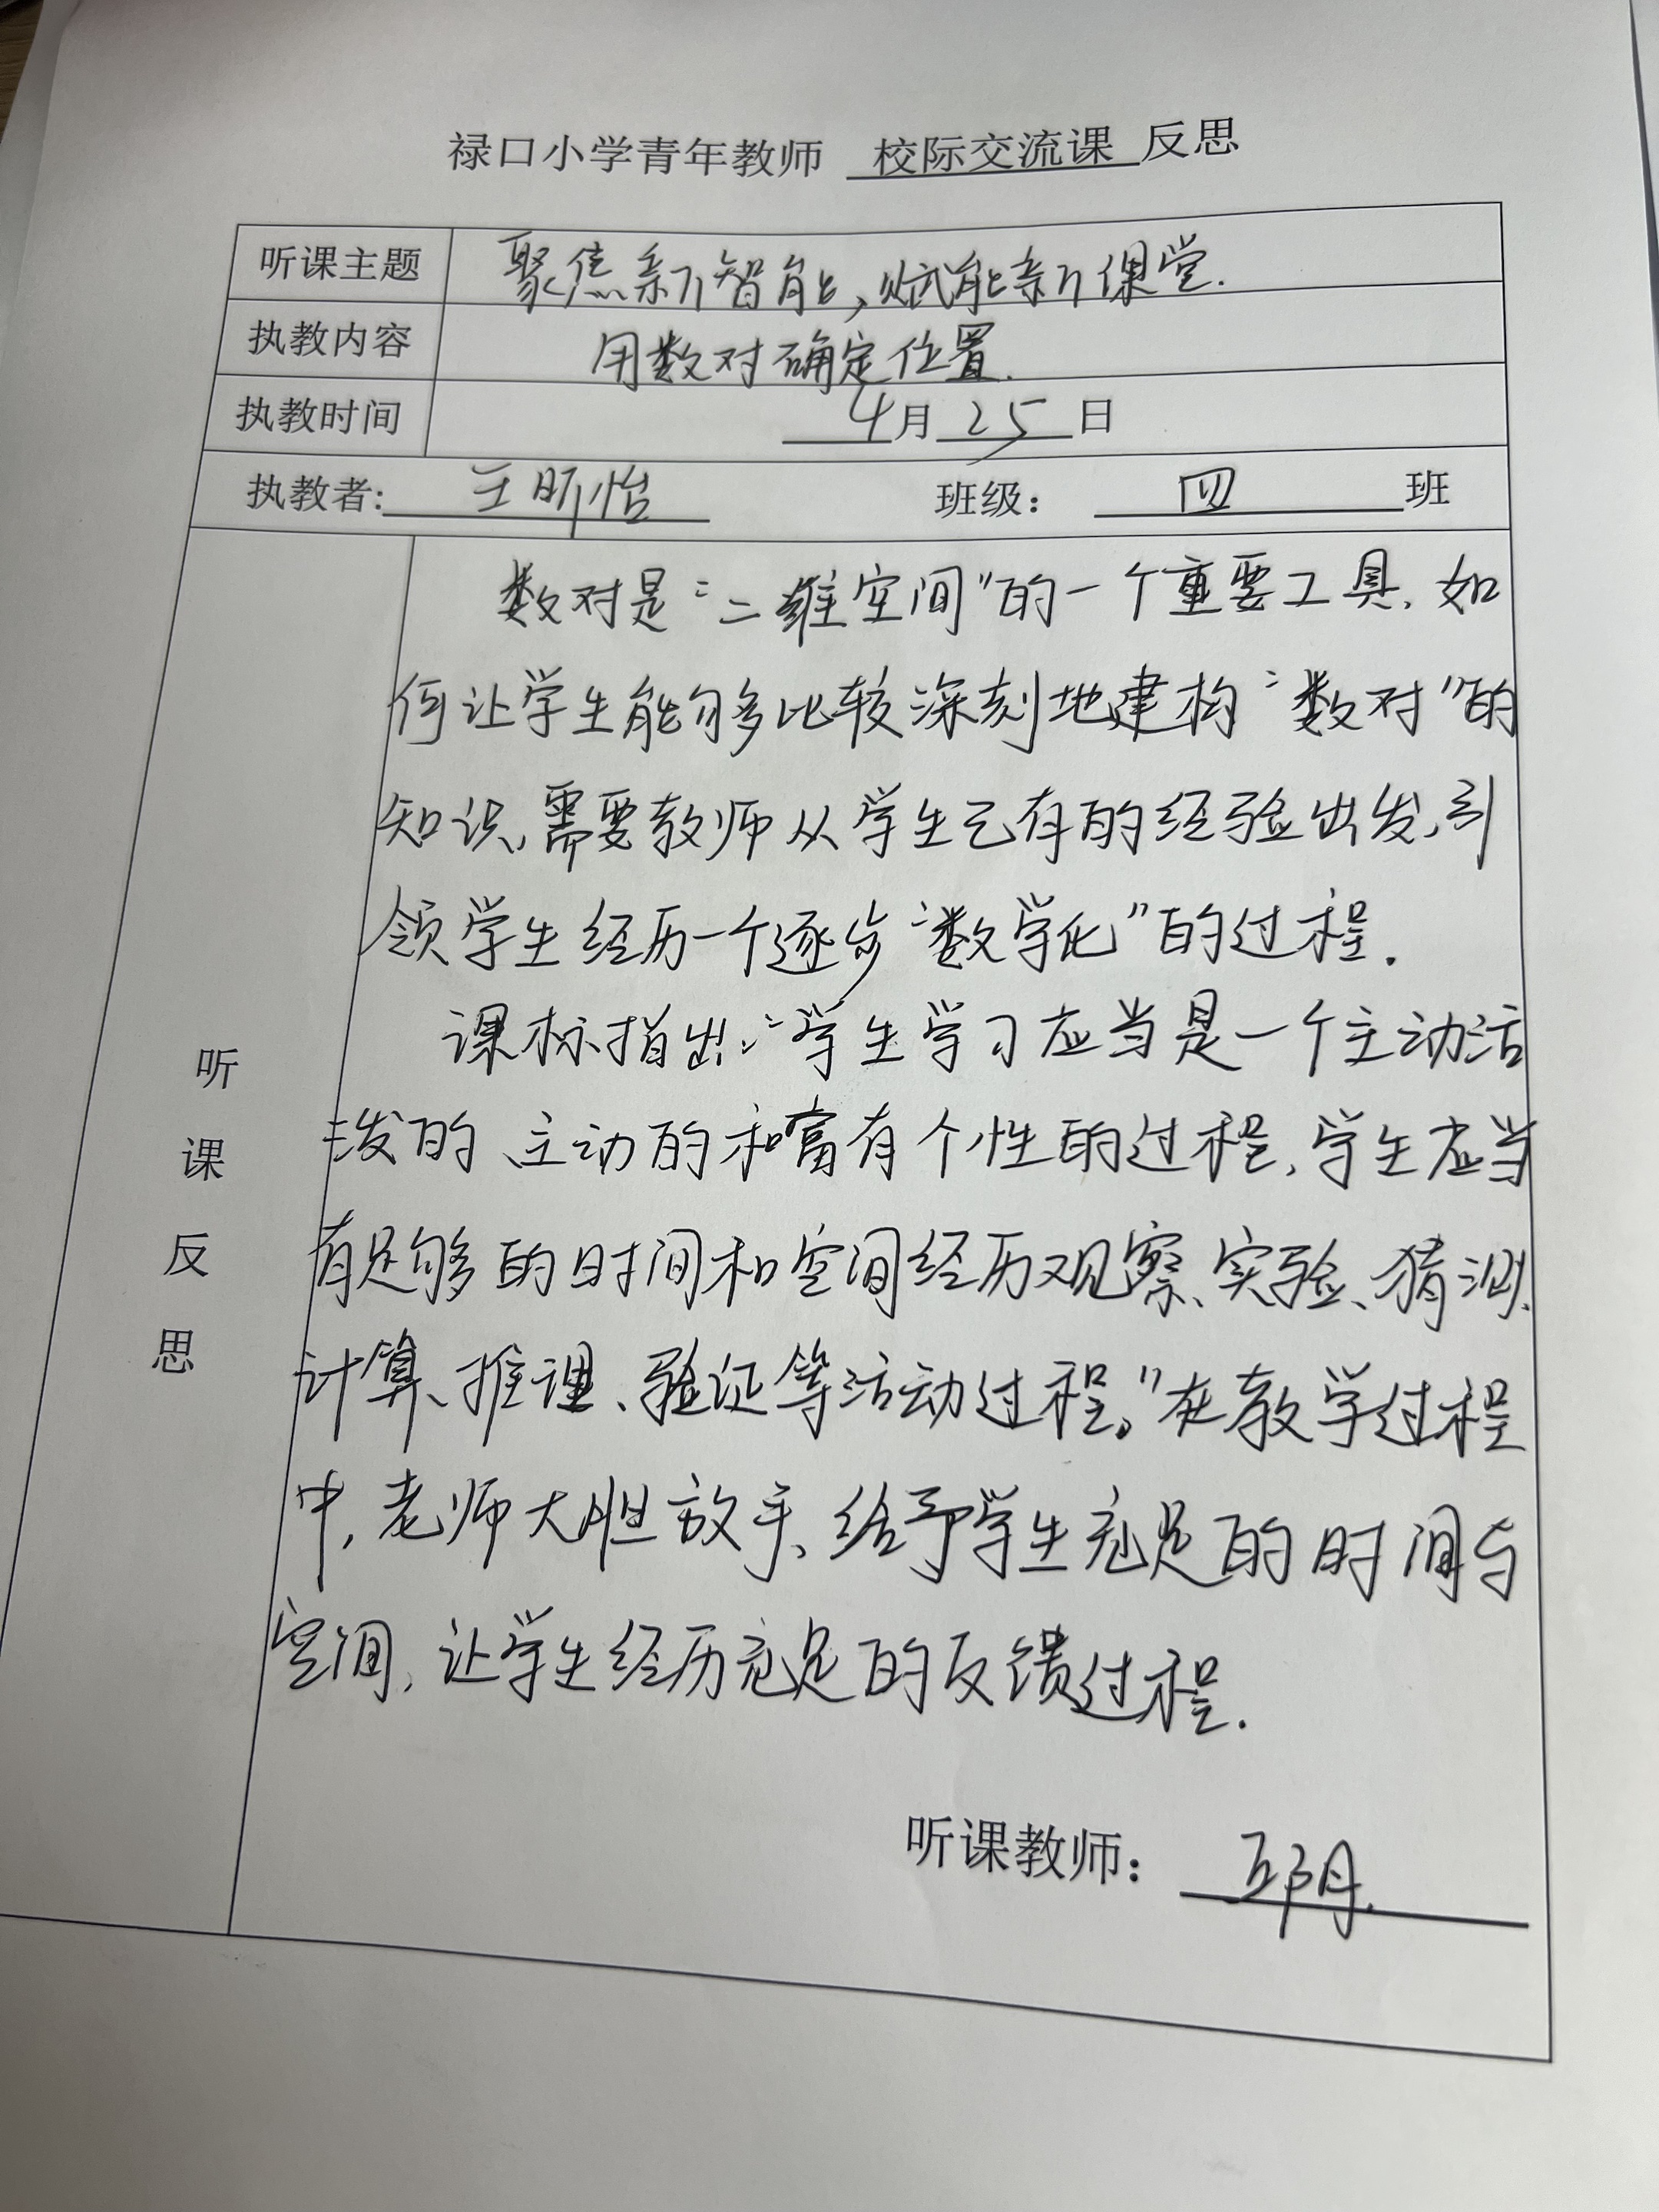 禄口小学青年教师 校际交流课 反思
听课主题 聚焦新智能,赋能新课堂.
执教内容 用数对确定位置.
执教时间 4月25日
执教者: 王昕怡 班级: 四 班
数对是“二维空间”的一个重要工具,如
何让学生能够比较深刻地建构“数对”的
知识,需要教师从学生已有的经验出发,引
领学生经历一个逐步“数学化”的过程.
课标指出:“学生学习应当是一个主动活
泼的、主动的和富有个性的过程,学生应当
有足够的时间和空间经历观察、实验、猜测、
计算、推理、验证等活动过程。”在教学过程
中,老师大胆放手、给予学生充足的时间与
空间,让学生经历充足的反馈过程.
听课反思
听课教师: 邱月.